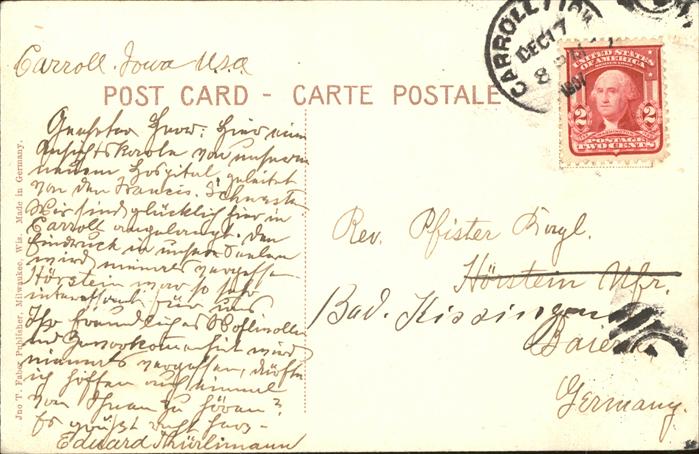 Carroll. Iowa Usa
POST CARD - CARTE POSTALE
CARROLL, IOWA
DEC 17
8
1907
UNITED STATES
OF AMERICA
2 2
POSTAGE
TWO CENTS
Geehrter Herr: Hier eine
Ansichtskarte von unserm
neuen Hospital geleitet
von den Francis. Schwestern
Wir sind glücklich hier in
Carroll angelangt. Den
Eindruck in unsere Seelen
wird niemals vergessen
Hörstein war so sehr
interessant für uns
Ihr freundliches Wohlwollen
und Zuvorkommenheit wird
niemals vergessen, dürfte
ich hoffen auf einmal
von Ihnen zu hören?
Es grüßt recht herz-
Eduard Thürlimann
Rev. Pfister
Hörstein Ufr.
Bad. Kissingen
Baiern
Germany.
Jno T. Faber Publisher, Milwaukee, Wis. Made in Germany.